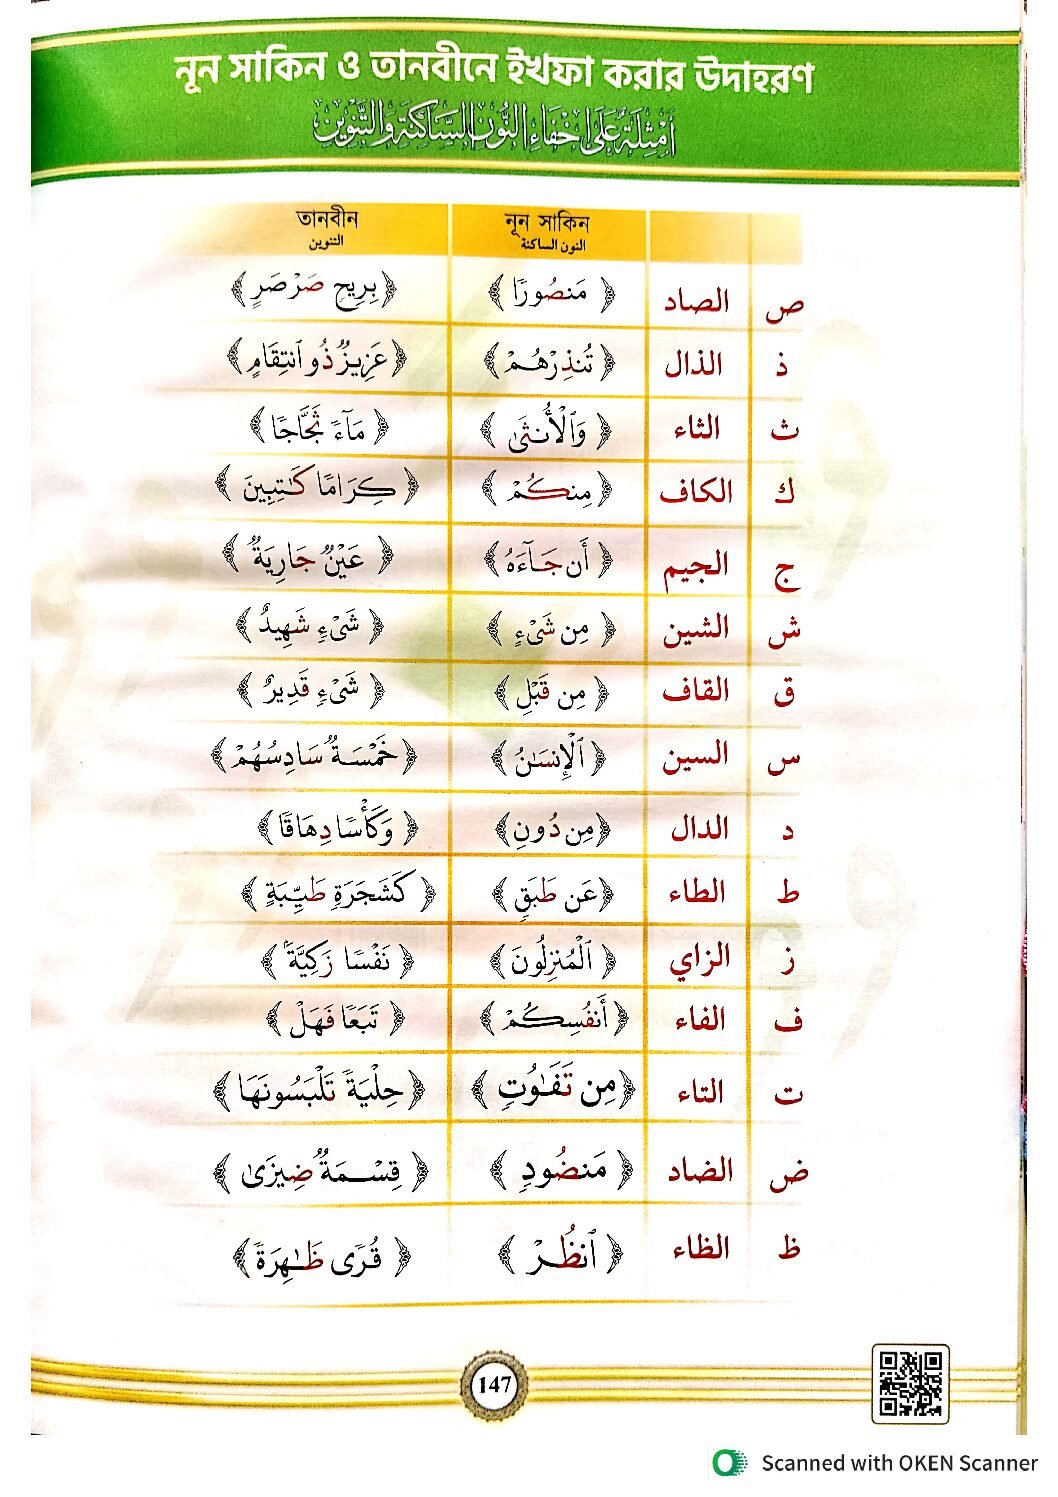 নূন সাকিন ও তানবীনে ইখফা করার উদাহরণ
أَمْثِلَةٌ عَلَى إِخْفَاءِ النُّونِ السَّاكِنَةِ وَالتَّنْوِينِ
নূন সাকিন তানবীন
النون الساكنة التنوين
ص الصاد ﴿ مَنصُورًا ﴾ ﴿ بِرِيحٍ صَرْصَرٍ ﴾
ذ الذال ﴿ تُنذِرْهُمْ ﴾ ﴿ عَزِيزٌ ذُو ٱنتِقَامٍ ﴾
ث الثاء ﴿ وَٱلْأُنثَىٰ ﴾ ﴿ مَآءً ثَجَّاجًا ﴾
ك الكاف ﴿ مِنكُمْ ﴾ ﴿ كِرَامًا كَـٰتِبِينَ ﴾
ج الجيم ﴿ أَن جَآءَهُ ﴾ ﴿ عَيْنٌ جَارِيَةٌ ﴾
ش الشين ﴿ مِن شَىْءٍ ﴾ ﴿ شَىْءٍ شَهِيدٌ ﴾
ق القاف ﴿ مِن قَبْلِ ﴾ ﴿ شَىْءٍ قَدِيرٌ ﴾
س السين ﴿ ٱلْإِنسَـٰنُ ﴾ ﴿ خَمْسَةٌ سَادِسُهُمْ ﴾
د الدال ﴿ مِن دُونِ ﴾ ﴿ وَكَأْسًا دِهَاقًا ﴾
ط الطاء ﴿ عَن طَبَقٍ ﴾ ﴿ كَشَجَرَةٍ طَيِّبَةٍ ﴾
ز الزاي ﴿ ٱلْمُنزِلُونَ ﴾ ﴿ نَفْسًا زَكِيَّةً ﴾
ف الفاء ﴿ أَنفُسِكُمْ ﴾ ﴿ تَبَعًا فَهَلْ ﴾
ت التاء ﴿ مِن تَفَـٰوُتٍ ﴾ ﴿ حِلْيَةً تَلْبَسُونَهَا ﴾
ض الضاد ﴿ مَنضُودٍ ﴾ ﴿ قِسْمَةٌ ضِيزَىٰ ﴾
ظ الظاء ﴿ ٱنظُرْ ﴾ ﴿ قُرًى ظَـٰهِرَةً ﴾
147
Scanned with OKEN Scanner